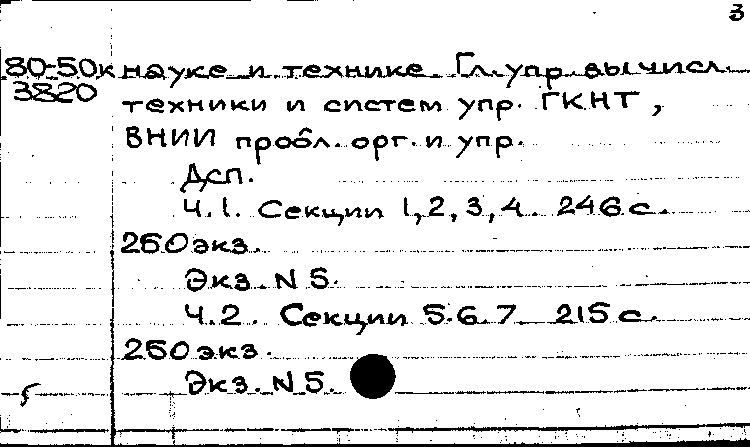 3
80-50к науке и технике. Гл. упр. вычисл.
3820 техники и систем упр. ГКНТ,
ВНИИ пробл. орг. и упр.
Дсп.
Ч.1. Секции 1,2,3,4. 246 с.
250 экз.
Экз. N 5.
Ч.2. Секции 5.6.7. 215 с.
250 экз.
Экз. N 5.